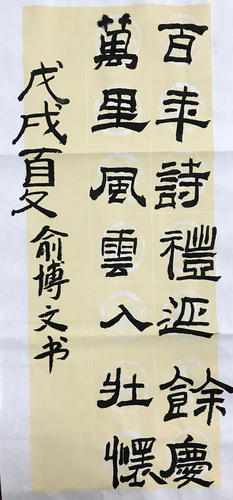 百年詩禮延餘慶
萬里風雲入壯懷
戊戌夏 俞博文书